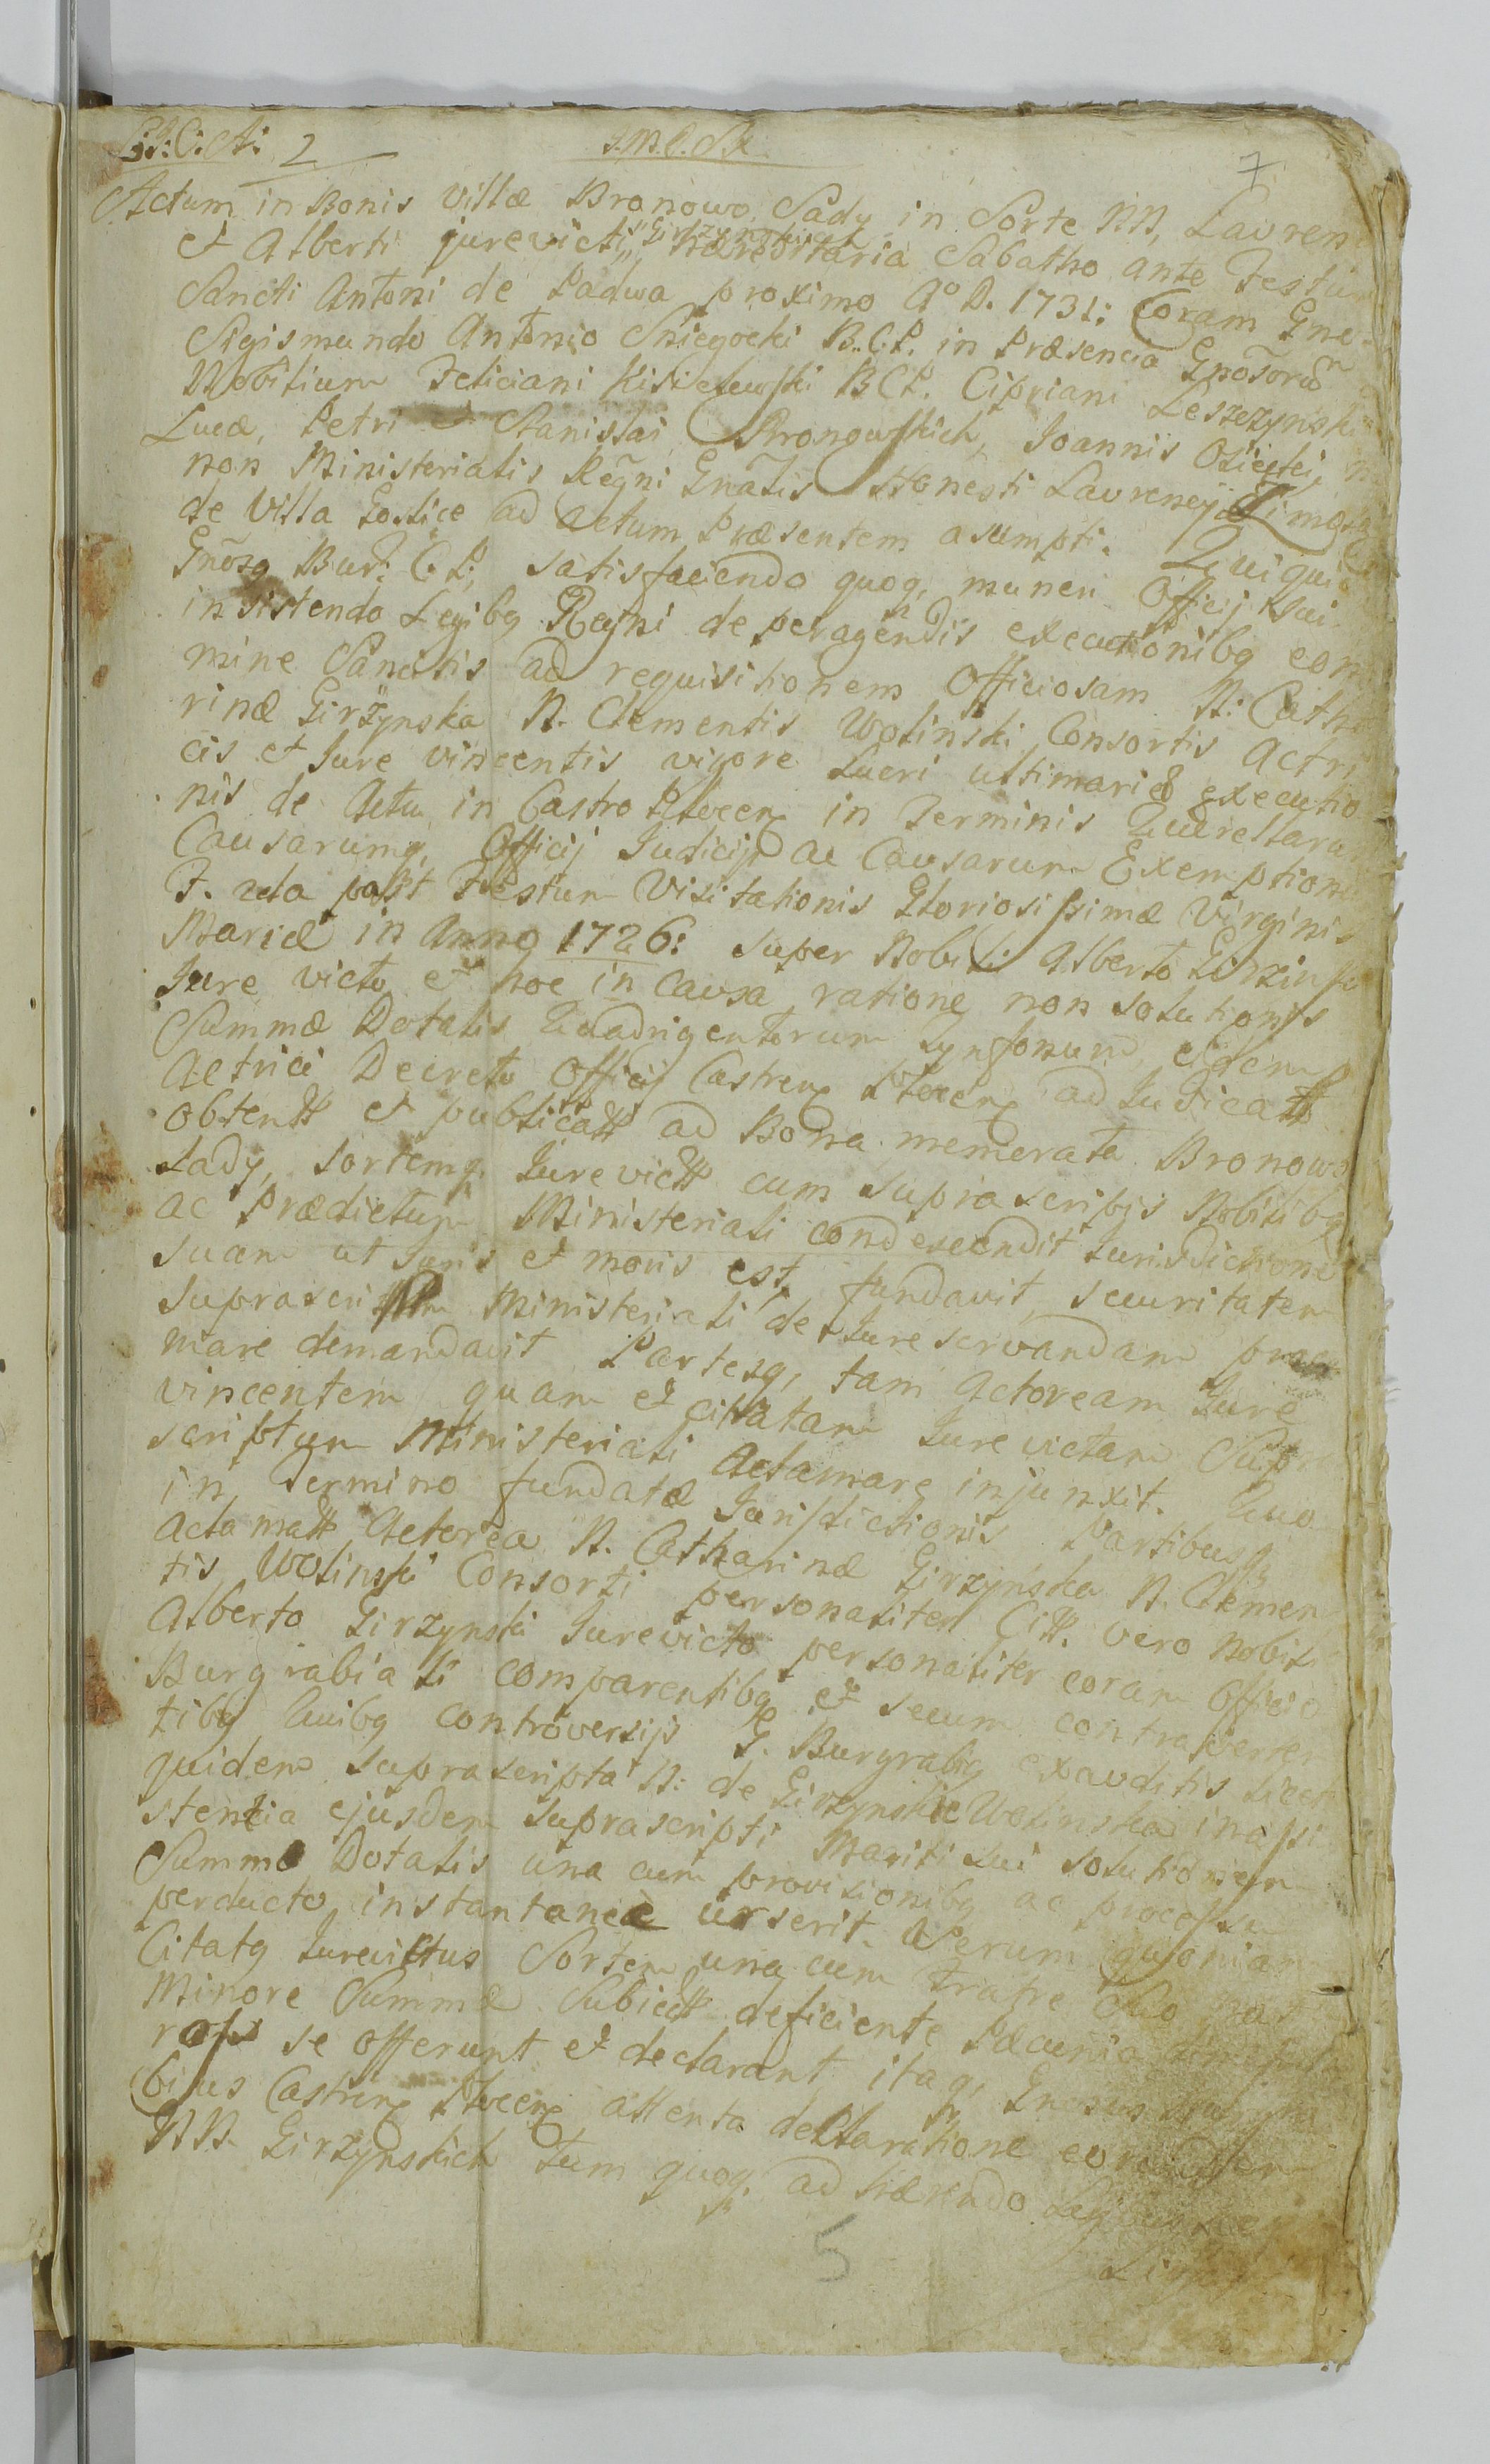 J.M.C.S.A.
7
Actum in Bonis Villæ Bronowo Sady in Sorte NN, Lauren
et Alberti jurevicti, "Girzynskich" hæreditaria Sabatho ante Festum
Sancti Antoni de Padua proximo A° D. 1731: Coram Gne
Sigismundo Antonio Sniegocki B.C.P. in Præsencia Gnosorum
Nobilium Feliciani Kisielewski BCP. Cipriani Leszczynski
Lucæ, Petri et Stanislai Bronowskich, Joannis
non Ministerialis Regni Gnalis Honesti Laurencij
de Villa Goslice ad Actum Præsentem asumpti. Quiqui
Gnosq Bur: C. P: satisfaciendo quoq, muneri Officij sui
insistendo Legibq Regni de peragendis executionibq com
mine Sancitis ad requisitionem Officiosam N: Catha
rinæ Girzynska N. Clementis Wolinski Consortis Actri
cis et Jure vincentis vigore Lucri ultimariæ executio
nis de Actu in Castro Plocen in Terminis Querellarum
Causarumq, Officij Judicij ac Causarum Exemptionum
F. 2da post Festum Visitationis Gloriosissimæ Virginis
Mariæ in Anno 1726: super Nobili Alberto Girzinski
Jure victo et hoc in Causa ratione non solutionis
Summæ Dotalis Quadrigentorum Tynfonum eidem
Actrici Decreto Officij Castren Plocen ad Judicatt
obtentt et publicatt ad Bona memerata Bronowo
Sady, sortemq. Jurevictt cum supra scriptis Nobilibq
ac Prædictum Ministeriali condescendit Jurisdictionem
suam ut Juris et moris est, fundavit, securitatem
suprascriptum Ministeriali de Jure servandam procla
mare demandavit Partesq, tam Actoream Jure
vincentem quam et citatam Jure victam Supra
scriptum Ministeriali Aclamare injunxit. Quo
in Termino fundatæ Jurisdictionis Partibusq
aclamatt Actorea N. Catharinæ Girzynska N. Clemen
tis Wolinski Consorti personaliter Citt. vero Nobili
Alberto Girzynski Jurevicto personaliter coram Officio
Burgrabiali comparentibq et secum contraverten
tibq Quibq controversijs G. Burgrabiq exauditis licet
quidem suprascripta N: de Girzynskie Wolinska in assi
stentia ejusdem suprascripti Mariti sui solutionem
Summæ Dotalis una cum provisionibq ac processu
perducto instantanee urserit. Verum quoniam
Citatq Jurevictus Sortem una cum Fratre Suo
Minore Summæ Subiectt deficiente Pæcunia
se offerunt et declarant, itaq, Gnosus Burgra
bius Castren Plocen attenta declaratione eorundem
NN. Girzynskich tum quoq, ad hærendo Legibus
5